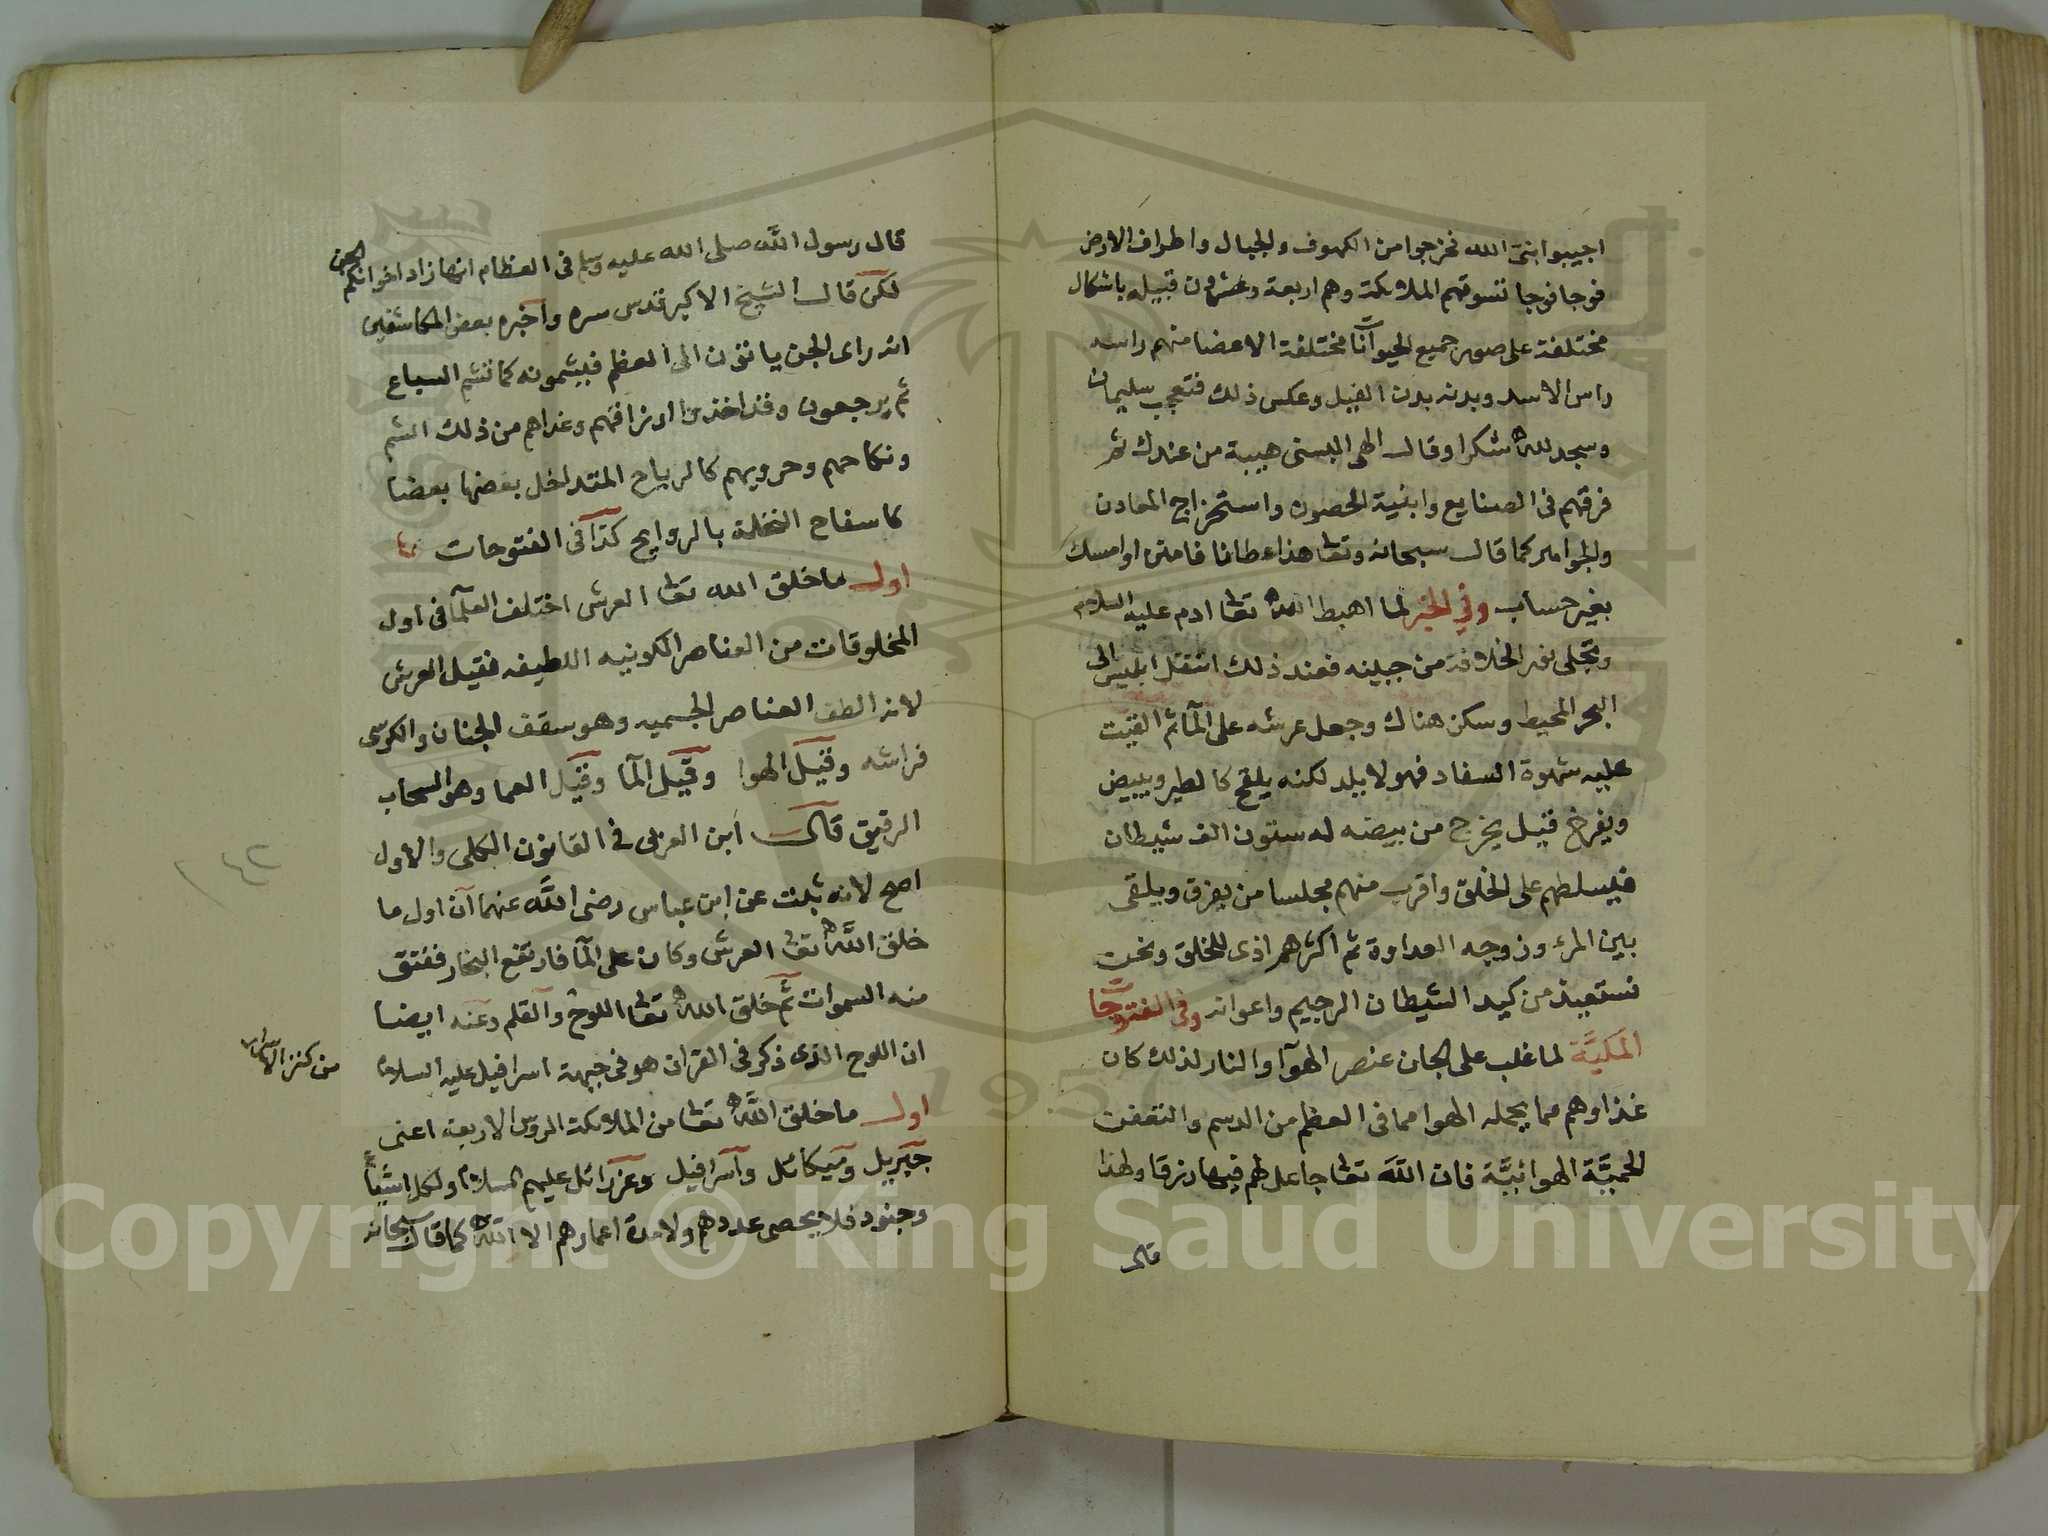 اجيبوا بنى الله فخرجوا من الكهوف والجبال واطراف الارض
فوجا فوجا تسوقهم الملائكة وهم اربعة وعشرون قبيله باشكال
مختلفة على صور جميع الحيوانات مختلفة الاعضا منهم راسه
راس الاسد وبدنه بدن الفيل وعكس ذلك فتعجب سليمان
وسجد لله شكرا وقال الهى البسنى هيبة من عندك ثم
فرقهم فى الصنايع وابنية الحصون واستخراج المعادن
والجواهر كما قال سبحانه وتعا هذا عطانا فامنن او امسك
بغير حساب وفي الخبر لما اهبط الله تعا ادم عليه السلام
وتجلى نور الخلافة من جبينه فعند ذلك انتقل ابليس الى
البحر المحيط وسكن هناك وجعل عرشه على المآ ثم القيت
عليه شهوة السفاد فهو لا يلد لكنه يلقح كالطير ويبيض
ويفرخ قيل يخرج من بيضه له ستون الف شيطان
فيسلطهم على الخلق واقرب منهم مجلسا من يفرق ويلقى
بين المرء وزوجه العداوة ثم اكثرهم اذى للخلق ونحن
نستعيذ من كيد الشيطان الرجيم واعوانه وفي الفتوحات
المكيَّة لما غلب على الجان عنصر الهوآ والنار لذلك كان
غذاوهم مما يحمله الهوا مما فى العظم من الدسم والتعفن
الهوائيَّة فان الله تعا جاعل لهم فيها رزقا ولهذا
قال
قال رسول الله صلى الله عليه وسلم فى العظام انها زاد اخوانكم الجن
لكن قال الشيخ الاكبر قدس سره وآخبره بعض المكاشفين
انه راى الجن ياتون الى العظم فيشمونه كما تشم السباع
ثم يرجعون وقد اخذوا ارزاقهم وغذاهم من ذلك الشم
ونكاحهم وحروبهم كالرياح المتداخل بعضها بعضا
كاسفاح النخلة بالروايح كذا فى الفتوحات
اول ما خلق الله تعا العرش اختلف العلمآ فى اول
المخلوقات من العناصر الكونيه اللطيفه فقيل العرش
لانه الطف العناصر الجسميه وهو سقف الجنان والكرسى
فراشه وقيل الهوا وقيل المآ وقيل العما وهو السحاب
الرقيق قال ابن العربى فى القانون الكلى والاول
اصح لانه ثبت عن ابن عباس رضى الله عنهما ان اول ما
خلق الله تعا العرش وكان على المآ فارتفع البخار ففتق
منه السموات ثم خلق الله تعا اللوح والقلم وعنه ايضا
ان اللوح الذى ذكر فى القران هو فى جبهة اسرافيل عليه السلام
من كنز
اول ما خلق الله تعا من الملائكة الروس الاربعه اعنى
جبريل وميكائل واسرافيل وعزرائل عليهم السلام ولكل
وجنود فلا يحصى عددهم ولا مدة اعمارهم الا الله كما قال سبحانه
Copyright © King Saud University